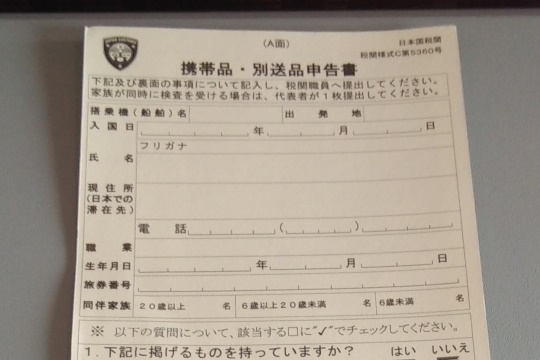 (A面)
日本国税関
税関様式C第5360号
携帯品・別送品申告書
下記及び裏面の事項について記入し、税関職員へ提出してください。
家族が同時に検査を受ける場合は、代表者が1枚提出してください。
搭乗機(船舶)名 出発地
入国日 年 月 日
フリガナ
氏名
現住所
(日本での
滞在先)
電話 ( )
職業
生年月日 年 月 日
旅券番号
同伴家族 20歳以上 名 6歳以上20歳未満 名 6歳未満 名
※ 以下の質問について、該当する□に"✓"でチェックしてください。
1.下記に掲げるものを持っていますか? はい いいえ